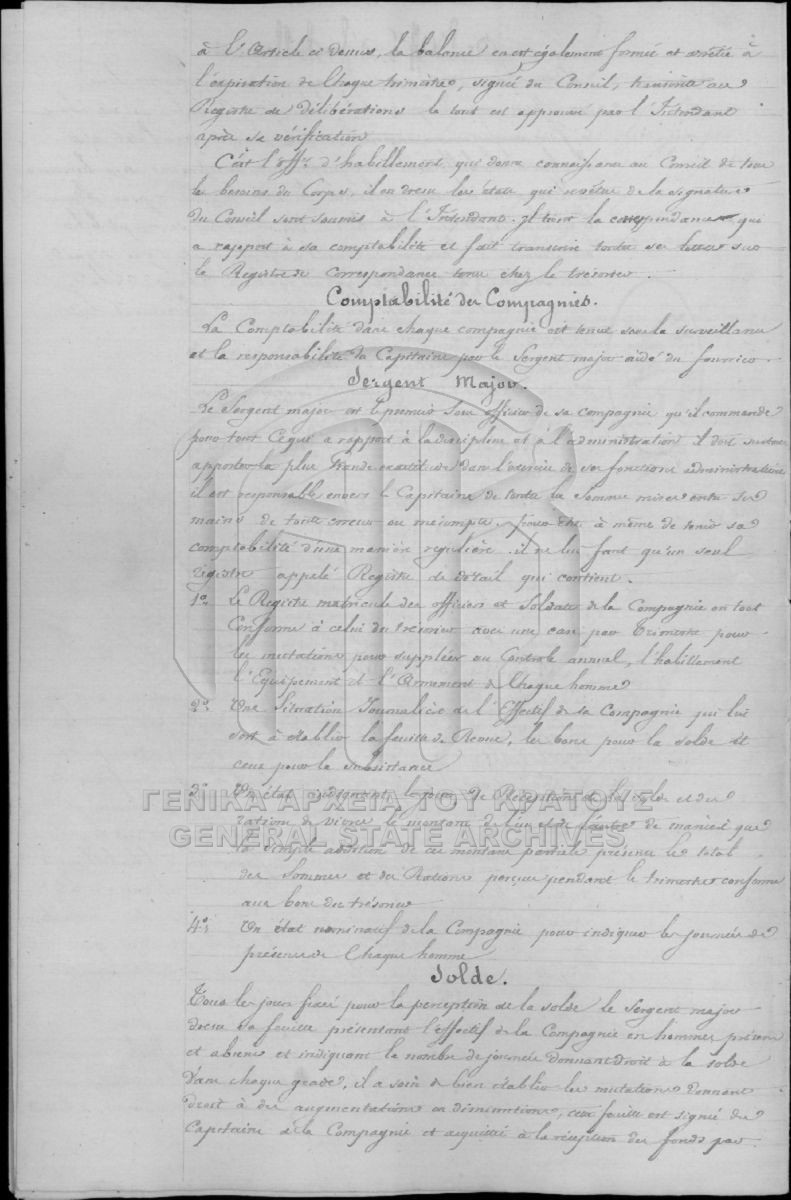 à l'Article ci dessus, la balance en est également formée et arrêtée à
l'expiration de Chaque trimestre, signée du Conseil, transcrite au
Registre de délibérations le tout est approuvé par l'Intendant
après sa vérification
C'est l'Offr. d'habillement qui donne connaissance au Conseil de tous
les besoins du Corps, il en dresse les états qui revêtus de la signature
du Conseil sont soumis à l'Intendant. Il tient la correspondance qui
a rapport à sa comptabilité et fait transcrire toutes ses lettres sur
le Registre de Correspondance tenu chez le trésorier.
Comptabilité des Compagnies.
La Comptabilité dans chaque compagnie est tenue sous la surveillance
et la responsabilité du Capitaine par le Sergent major aidé du fourrier.
Sergent Major.
Le Sergent major est le premier Sous officier de sa compagnie qu'il commande
pour tout Cequi a rapport à la discipline et à l'administration il doit surtout
apporter la plus grande exactitude dans l'exercice de ses fonctions administratives
il est responsable envers le Capitaine de toutes les Sommes mises entre ses
mains de toute erreur ou mécompte. pour être à même de tenir sa
comptabilité d'une manière régulière. il ne lui faut qu'un seul
registre appelé Registre de détail qui contient.
1o. Le Registre matricule des officiers et Soldats de la Compagnie en tout
Conforme à celui du trésorier avec une case par Trimestre pour
les mutations pour suppléer au Controle annuel, l'habillement
l'Equipement et l'Armement de Chaque homme
2o. Une Situation Journalière de l'Effectif de sa Compagnie qui lui
sert à établir la feuille de Revue, les bons pour la solde et
ceux pour la subsistance
3o. Un état indiquant le jour de Réception de la solde et des
ΓΕΝΙΚΑ ΑΡΧΕΙΑ ΤΟΥ ΚΡΑΤΟΥΣ
ration de vivres le montant de l'un et de l'autre de manière que
GENERAL STATE ARCHIVES
la simple addition de ces montans partiels présente le total
des Sommes et des Rations perçues pendant le trimestre conforme
aux bons du trésorier
4o. Un état nominatif de la Compagnie pour indiquer les journées de
présence de Chaque homme
Solde.
Tous les jours fixés pour la perception de la solde le Sergent major
dresse sa feuille présentant l'effectif de la Compagnie en hommes présens
et absens et indiquant le nombre de journées donnant droit à la solde
dans chaque grade, il a soin de bien établir les mutations donnant
droit à des augmentations ou diminutions, cette feuille est signée du
Capitaine de la Compagnie et acquittée à la réception des fonds par